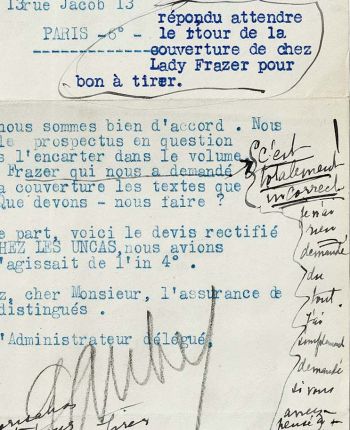 13rue Jacob 13
PARIS -6° -
répondu attendre
le rtour de la
couverture de chez
Lady Frazer pour
bon à tirer.
nous sommes bien d'accord . Nous
le prospectus en question
s l'encarter dans le volume
Frazer qui nous a demandé
a couverture les textes que
Que devons - nous faire ?
e part, voici le devis rectifié
HEZ LES UNCAS, nous avions
'agissait de l'in 4° .
z, cher Monsieur, l'assurance de
distingués .
'Administrateur délégué,
c'est
totalement
incorrect
je n'ai
rien
demandé
du
tout.
J'ai
simplement
demandé
si vous
aviez
pensé à